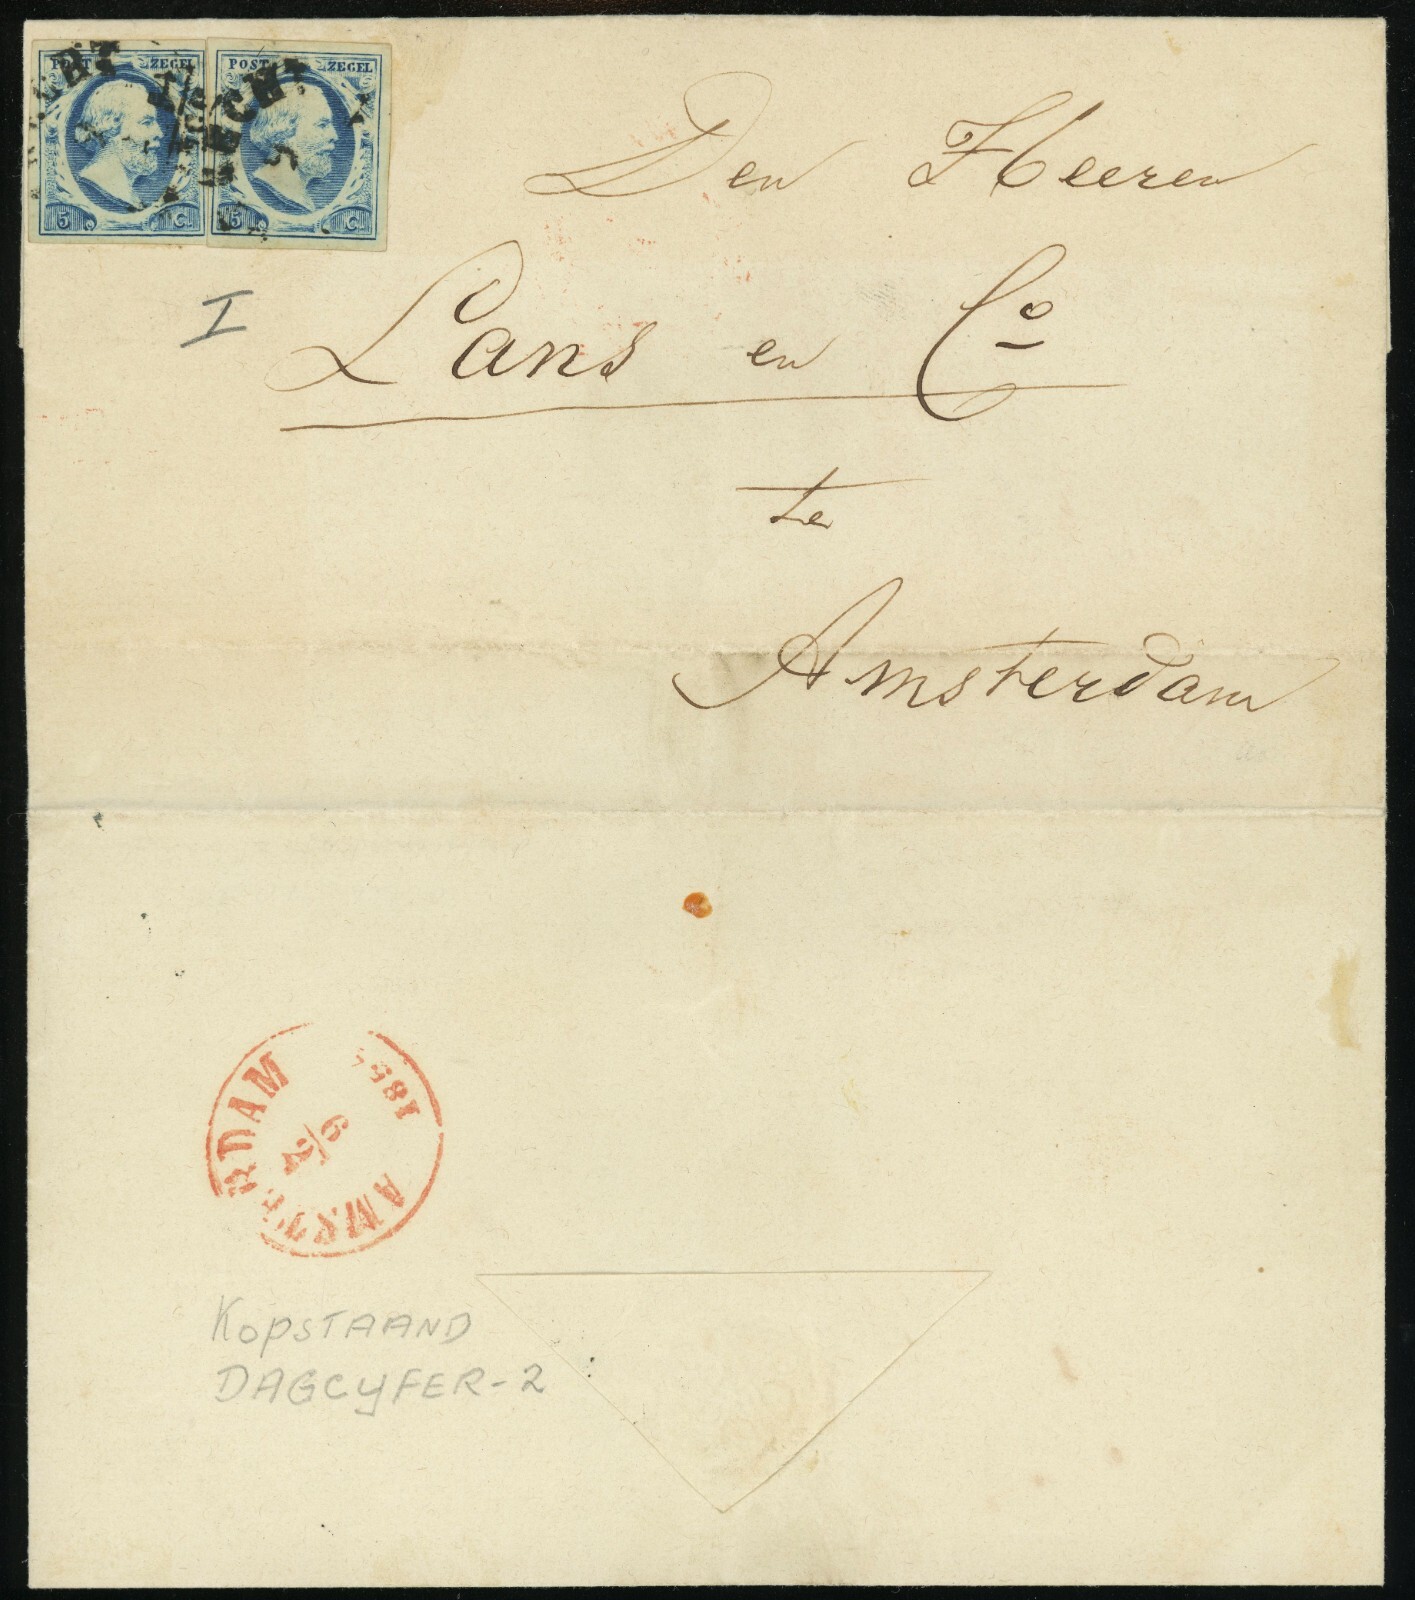 POST ZEGEL POST ZEGEL
5 C. 5 C.
Den Heeren
I
Lans en Co
te
Amsterdam
AMSTERDAM
6/2
KOPSTAAND
DAGCYFER-2